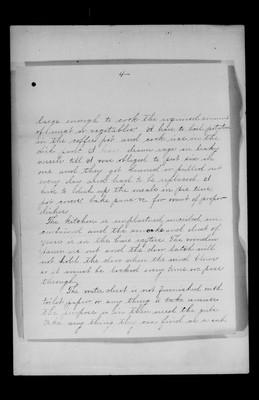 4-
large enough to cook the required amount
of meat or vegetables. I have to boil potatoes
in the coffee pot and cook rice in the
dish pan. I have drawn rags in leaky
vessels till I was obliged to put six in
one and they get burned or pulled out
every day and have to be replaced. I
have to dish up the meals in pie tins
pot covers bake pans &c for want of proper
dishes.
The kitchen is unplastered unceiled un
curtained and the smoke and dust of
years is on the bare rafters. The window
panes are out and the door latch will
not hold the door when the wind blows
so it must be locked every time we pass
through.
The water closet is not furnished with
toilet paper or any thing to take
the purpose
take any thing they can find as a sub